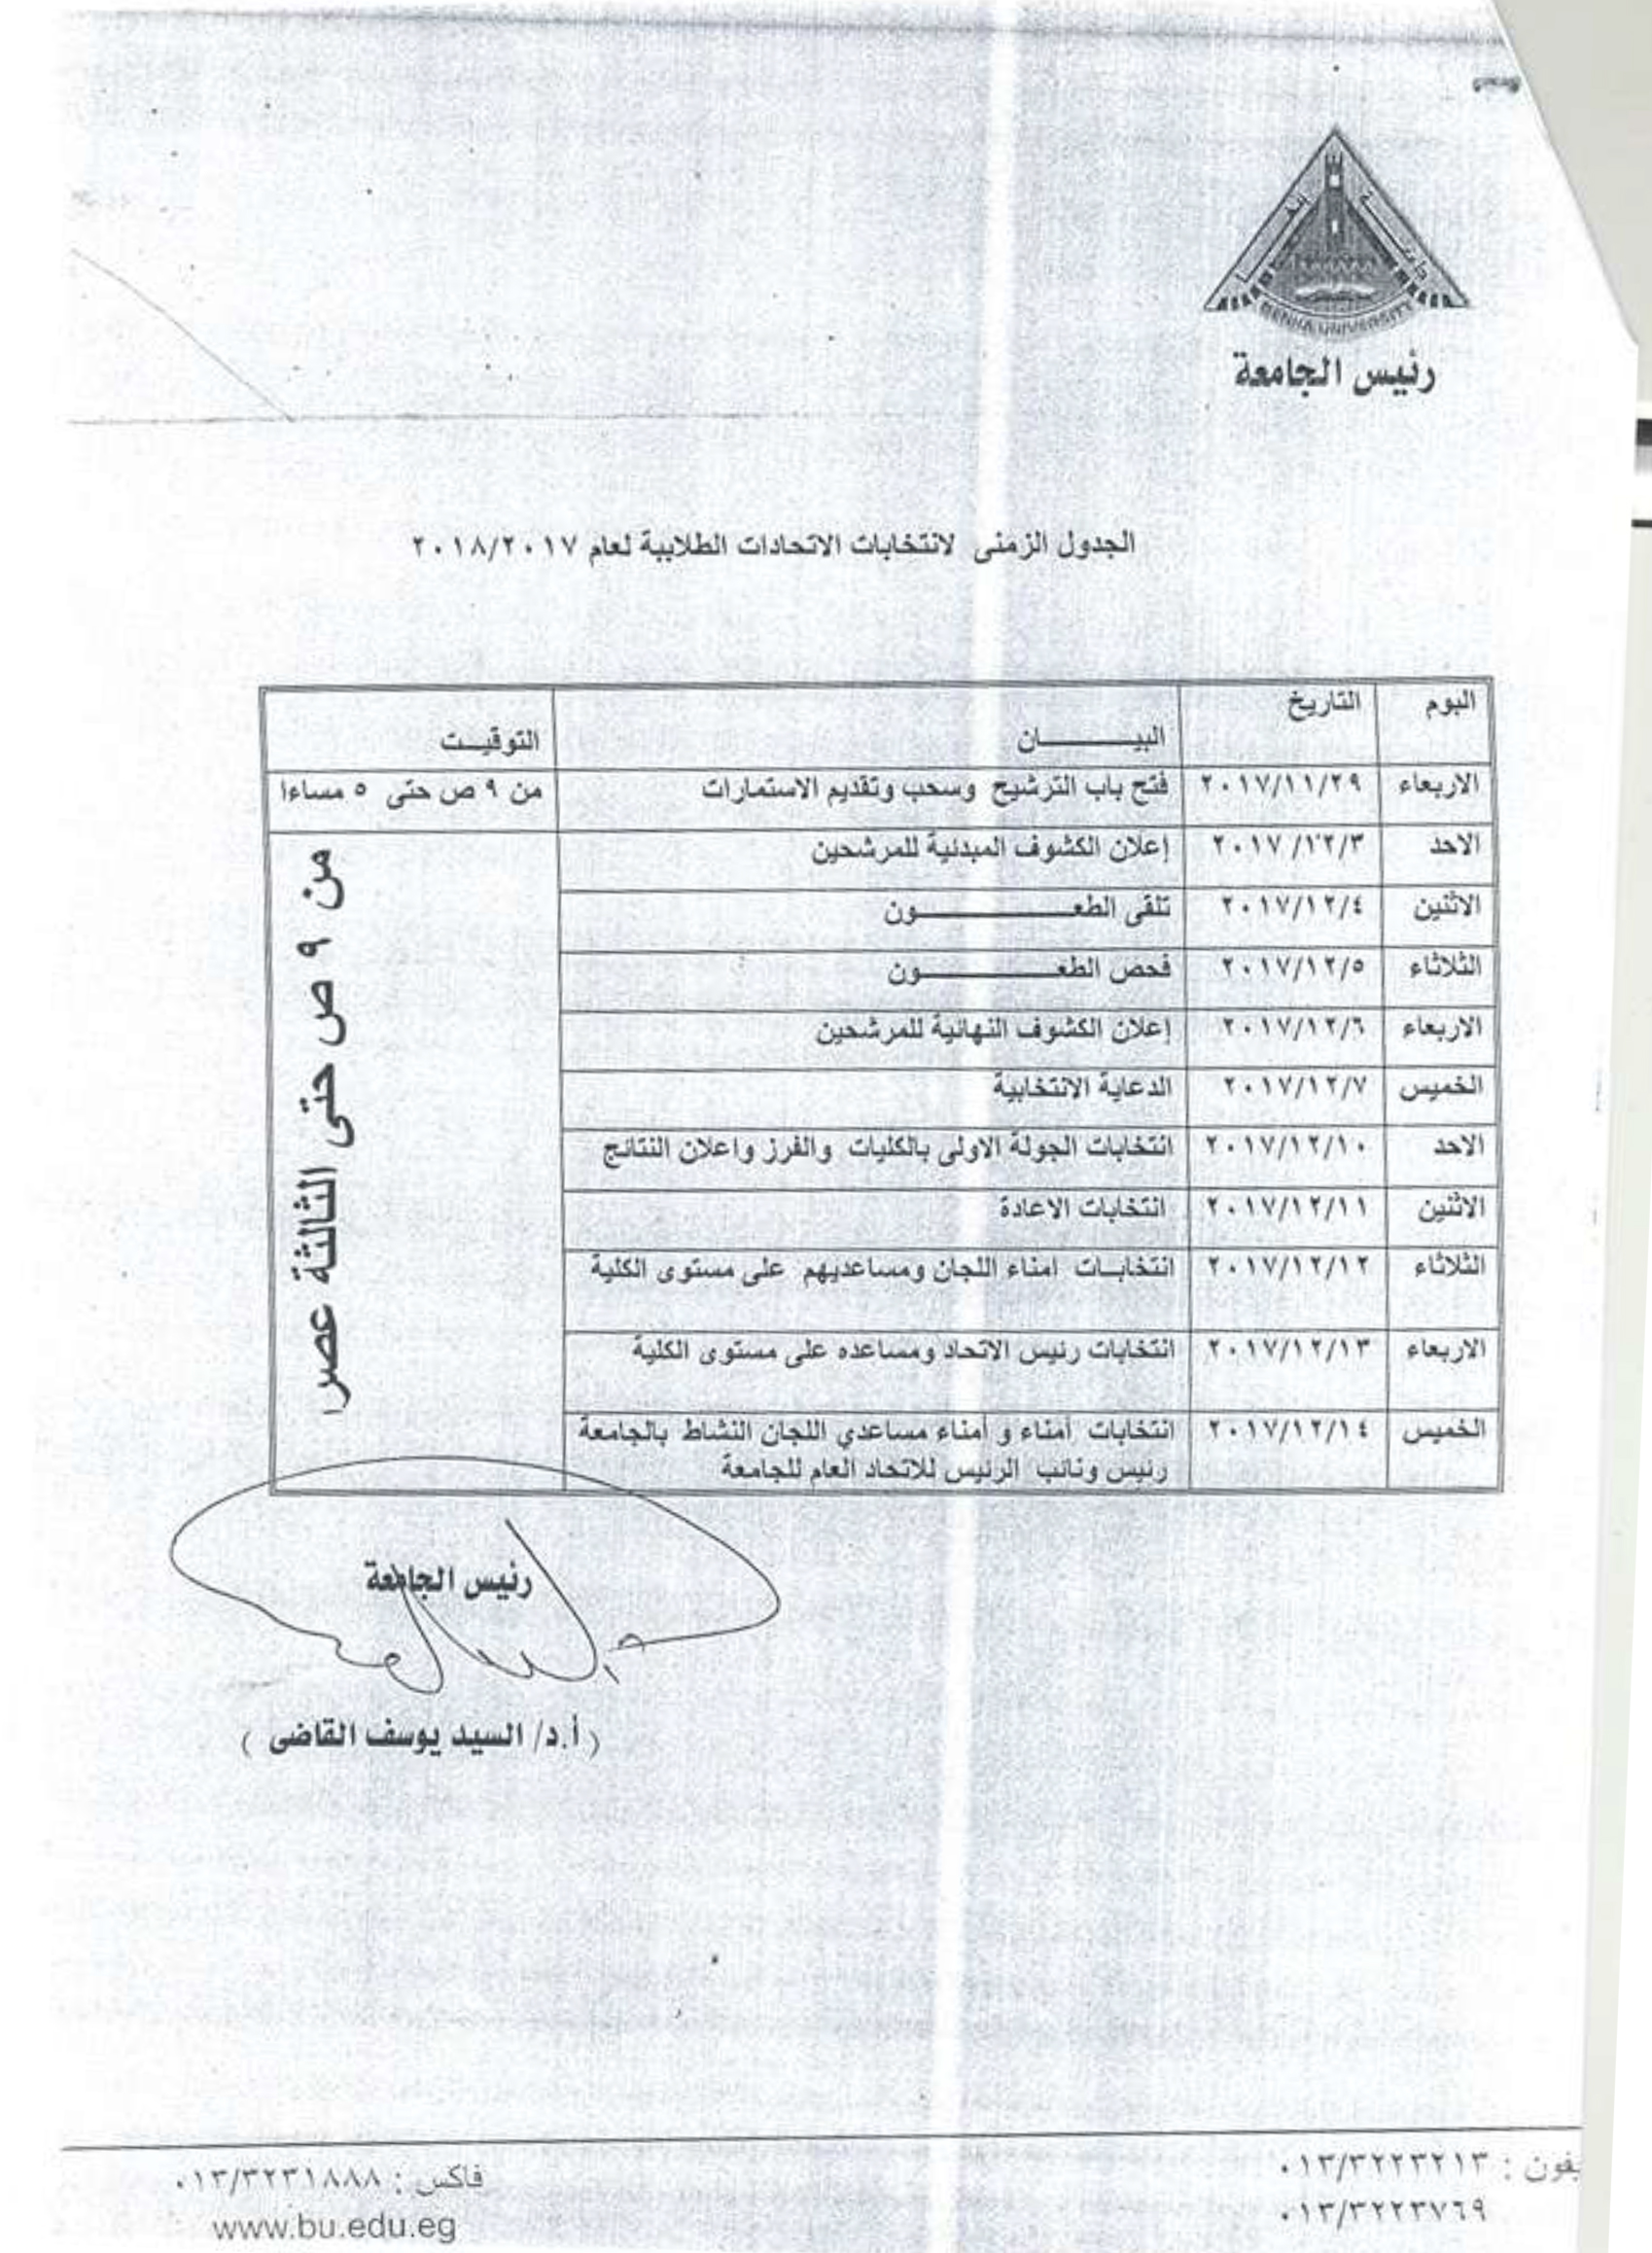 جامعة بنها
BENHA UNIVERSITY
رئيس الجامعة
الجدول الزمنى لانتخابات الاتحادات الطلابية لعام ٢٠١٨/٢٠١٧
اليوم التاريخ البيـــــــــان التوقيـــت
الاربعاء ٢٠١٧/١١/٢٩ فتح باب الترشيح وسحب وتقديم الاستمارات من ٩ ص حتى ٥ مساءا
الاحد ٢٠١٧/١٢/٣ إعلان الكشوف المبدئية للمرشحين
الاثنين ٢٠١٧/١٢/٤ تلقى الطعـــــــــــــــون
الثلاثاء ٢٠١٧/١٢/٥ فحص الطعـــــــــــــــون
الاربعاء ٢٠١٧/١٢/٦ إعلان الكشوف النهائية للمرشحين
الخميس ٢٠١٧/١٢/٧ الدعاية الانتخابية
الاحد ٢٠١٧/١٢/١٠ انتخابات الجولة الاولى بالكليات والفرز واعلان النتائج
الاثنين ٢٠١٧/١٢/١١ انتخابات الاعادة
الثلاثاء ٢٠١٧/١٢/١٢ انتخابـات امناء اللجان ومساعديهم على مستوى الكلية
الاربعاء ٢٠١٧/١٢/١٣ انتخابات رئيس الاتحاد ومساعده على مستوى الكلية
الخميس ٢٠١٧/١٢/١٤ انتخابات أمناء و أمناء مساعدي اللجان النشاط بالجامعة
رئيس ونائب الرئيس للاتحاد العام للجامعة
من ٩ ص حتى الثالثة عصرا
رئيس الجامعة
( أ.د/ السيد يوسف القاضى )
يفون : ٠١٣/٣٢٢٣٢١٣
٠١٣/٣٢٢٣٧٦٩
فاكس : ٠١٣/٣٢٣١٨٨٨
www.bu.edu.eg